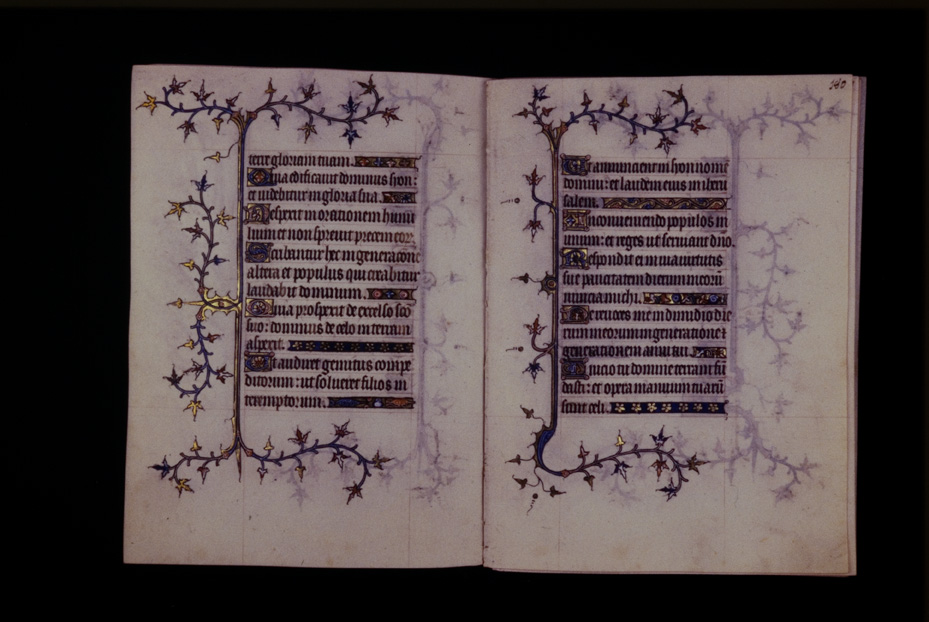 terre gloriam tuam.
Quia edificauit dominus syon:
et uidebitur in gloria sua.
Respexit in orationem humi
lium et non spreuit precem eor̄.
Scribantur hec in generatione
altera et populus qui creabitur
laudabit dominum.
Quia prospexit de excelso sc̄o
suo: dominus de celo in terram
aspexit.
Ut audiret gemitus compe
ditorum: ut solueret filios in
teremptorum.
Ut annuncient in syon nomē
domini: et laudem eius in ihrū
salem.
In conueniendo populos in
unum: et reges ut seruiant dn̄o.
Respondit ei in uia uirtutis
sue paucitatem dierum meorū
nuncia michi.
Ne reuoces me in dimidio die
rum meorum in generatione ⁊
generationem anni tui.
Inicio tu domine terram fū
dasti: et opera manuum tuarū
sunt celi.